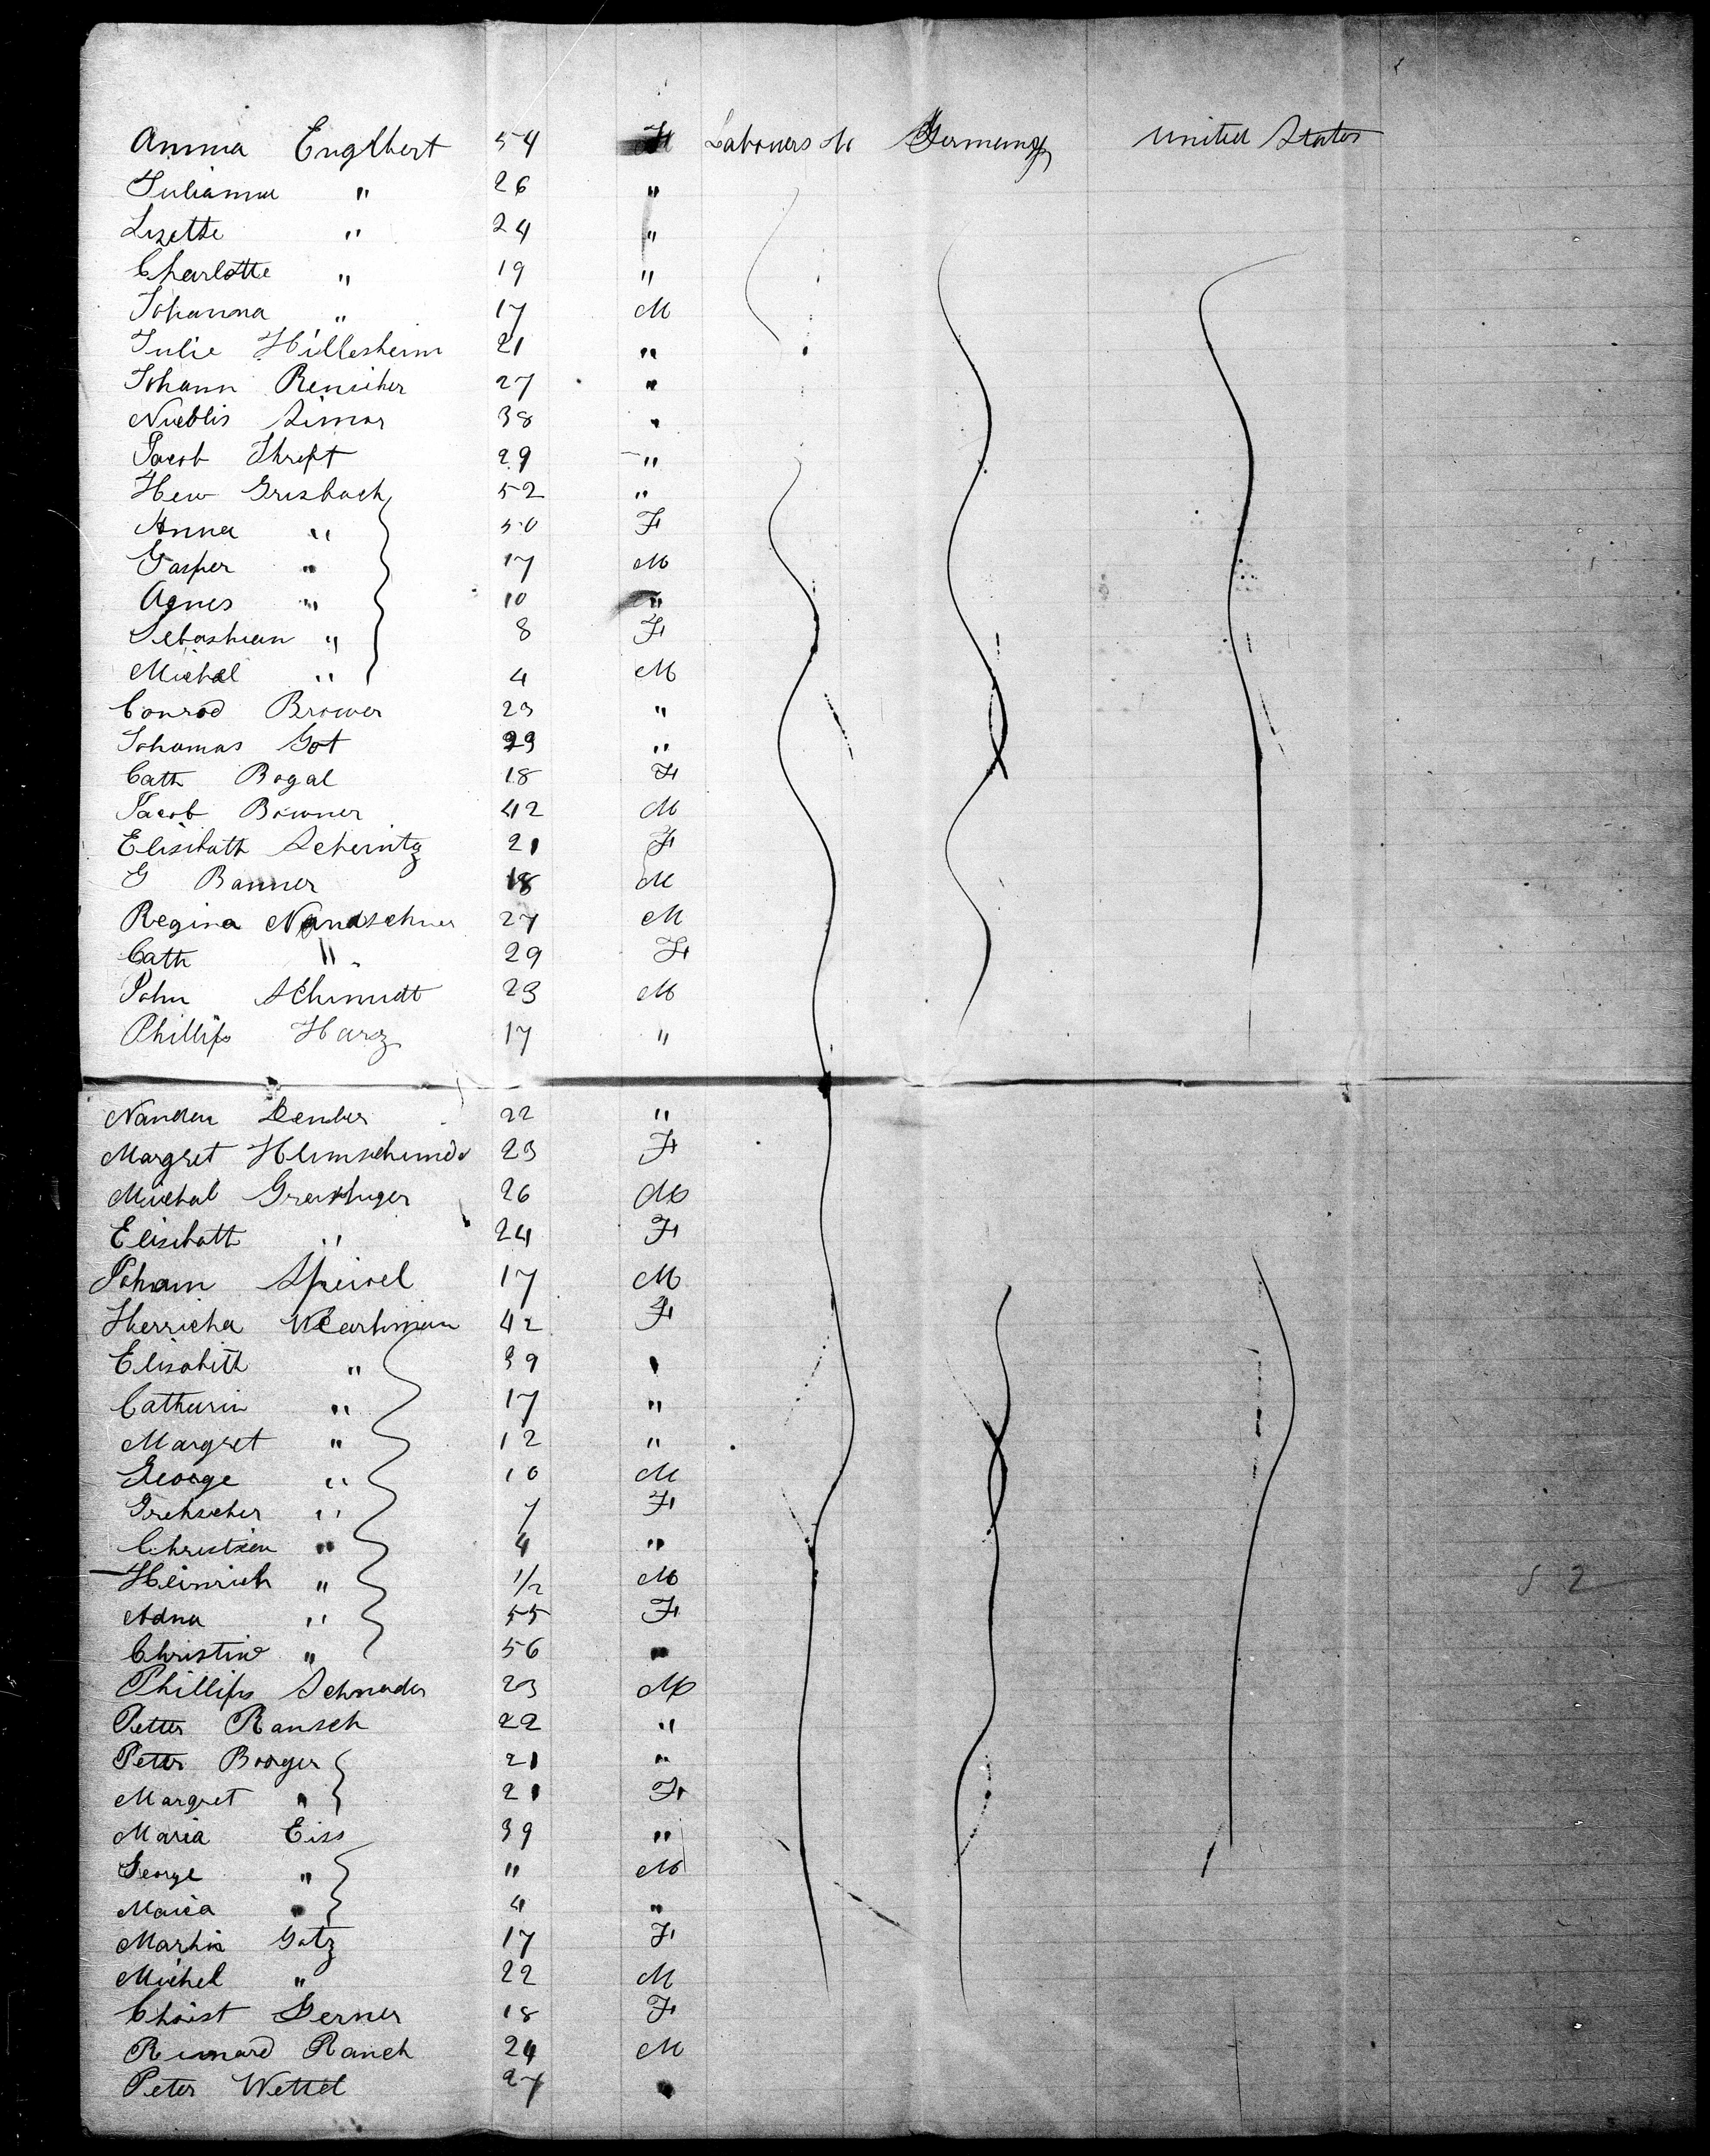 Anna Englbert 54 F Labourers Germany United States
Julianna " 26 "
Lisette " 24 "
Charlotte " 19 "
Johanna " 17 M
Julie Hillesheim 21 "
Johann Renicher 27 "
Nicblis Simar 38 "
Jacob Threft 29 "
Hew Grisbach 52 "
Anna " 50 F
Gasper " 17 M
Agnes " 10 "
Sebastian " 8 F
Michel " 4 M
Conrad Brower 23 "
Johamas Got 23 "
Cath Bogal 18 F
Jacob Bowner 42 M
Elisibath Scheintg 21 F
G Banner 18 M
Regina Nandschner 27 M
Cath " 29 F
John Schmidt 23 M
Phillips Harz 17 "
Nanden Denber 22 "
Margret Hlimschmidt 23 F
Michal 26 M
Elisibath " 24 F
Joham Speicel 17 M
Herricha 42 F
Elisabith " 39 "
Catharin " 17 "
Margret " 12 "
George " 10 M
Grehscher " 7 F
Christien " 4 "
Heinrich " 1/2 M
Adna " 55 F
Christine " 56 "
Phillips Schnader 23 M
Petter Rausch 22 "
Petter Borger 21 "
Margret " 21 F
Maria Eiss 39 "
George " " M
Maria " 4 "
Martin Gotz 17 F
Michel " 22 M
Christ Gerner 18 F
Rinard Ranch 24 M
Peter Wettel 27 "